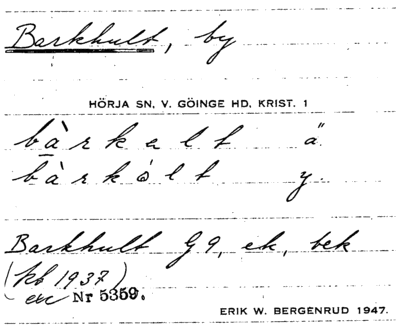 Barkhult, by
HÖRJA SN, V. GÖINGE HD, KRIST. 1
bàrkalt ä.
bàrkólt y.
Barkhult G 9, ek, bek
(kb 1937)
Nr 5359.
ERIK W. BERGENRUD 1947.